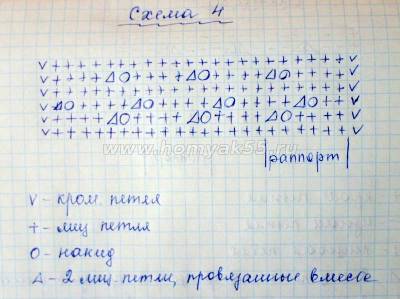 Схема 4
V + + + + + + + + + + + + + + + + + + V
V + + + + Δ O + + + + Δ O + + + + Δ O + + + V
V + + + + + + + + + + + + + + + + + + V
V Δ O + + + + Δ O + + + + Δ O + + + + Δ O + V
V + + + + Δ O + + + + Δ O + + + + Δ O + + + V
V + + + + + + + + + + + + + + + + + + V
www.homyak55.ru
раппорт
V - кром. петля
+ - лиц. петля
O - накид
Δ - 2 лиц. петли, провязанные вместе